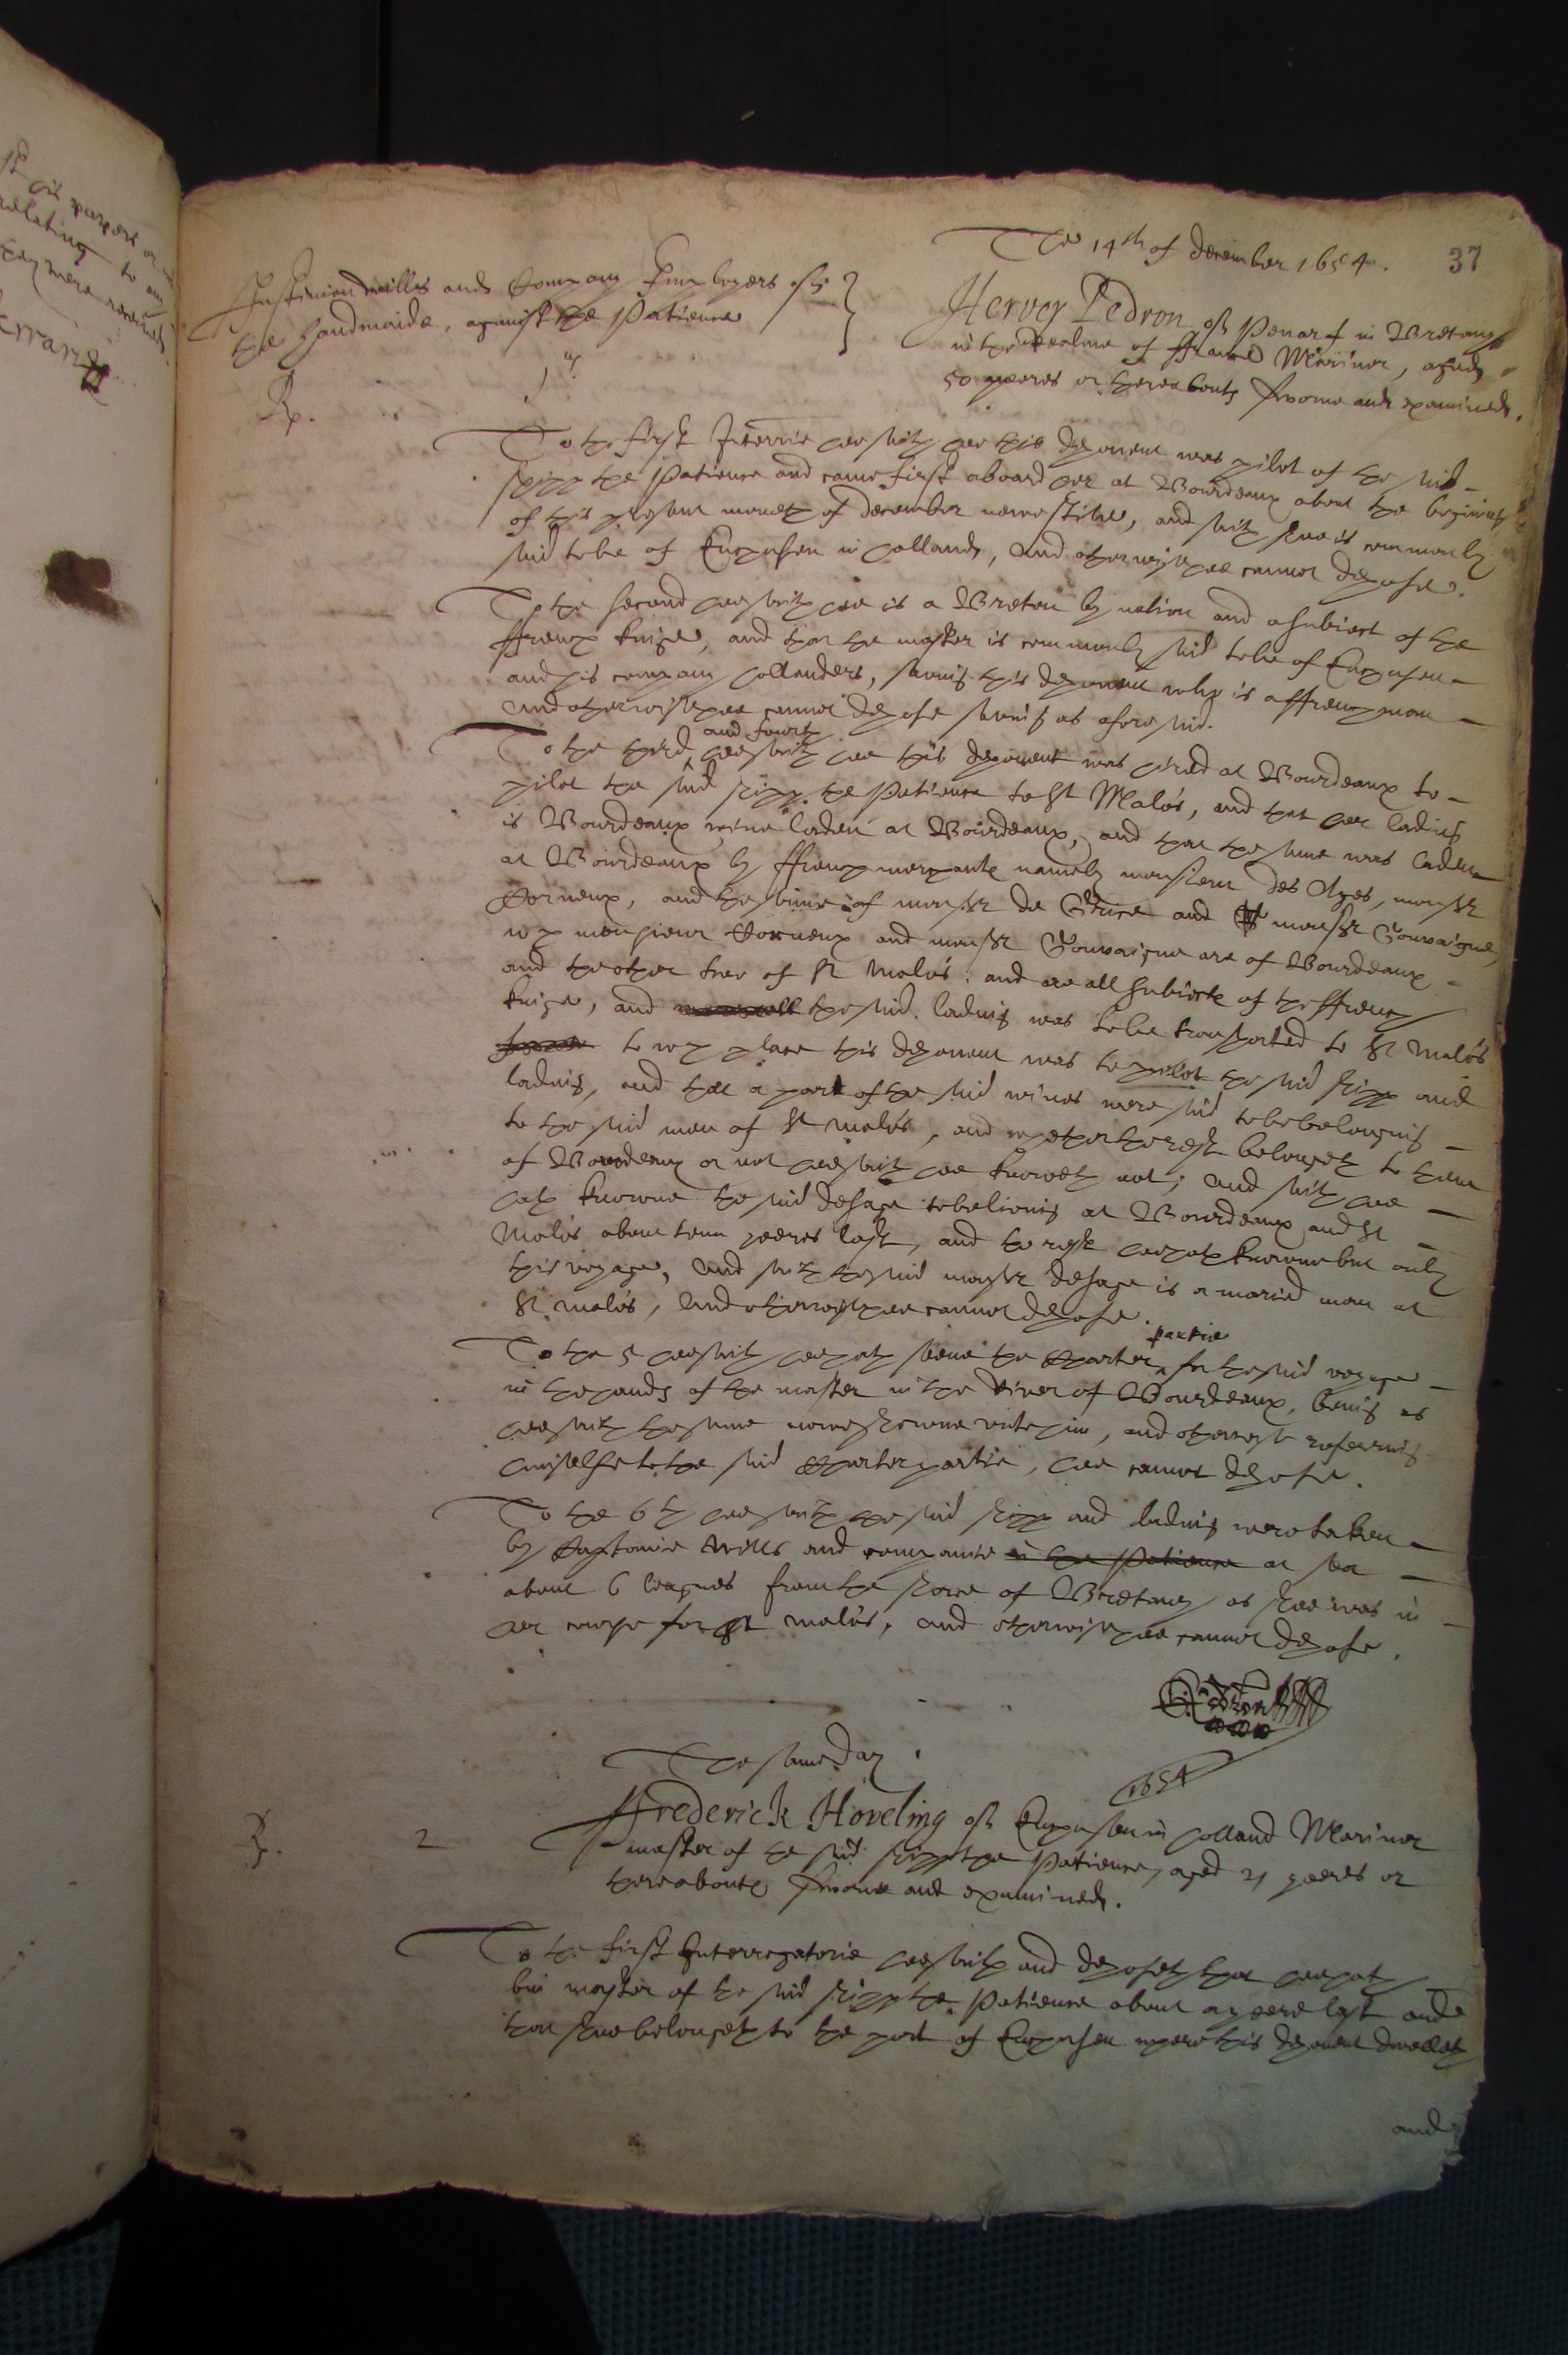 The 14th of december 1654.
37
Justinian Willes and Company Imployers of
the handmaide, against the Patience
Rp.
Hervey Pedron of Penarf in Bretany
in the Realme of ffrance Mariner, aged
50 yeeres or thereabouts sworne and examined.
To the first Interrie hee saith hee this deponent was pilot of the said
shipp the Patience and came first aboard her at Bourdeaux about the begining
of this present moneth of december newe stile, and saith shee is commonly
said to be of Enchusen in holland, and otherwise hee cannot depose.
To the second hee saith hee is a Breton by nation and a subiect of the
ffrench kinge, and that the master is commonly said to be of Enchusen
and his company hollanders, saving this deponent who is a ffrenchman
and otherwise hee cannot depose saving as aforesaid.
and fourth
To the third hee saith hee this deponent was hired at Bourdeaux to
pilot the said shipp the Patience to St Malo's, and that her lading
is Bourdeaux wine laden at Bourdeaux, and that the same was laden
at Bourdeaux by ffrench merchants namely monsieur des Ages, monsr
Corneux, and the wine of monsr de and monsr Gouvaigne,
wch monsieur Corneux and monsr Gouvaigne are of Bourdeaux
and the other two of St Malo's: and are all subiects of the ffrench
kinge, and the said lading was to be transported to St Malo's
to wch place this deponent was to pilot the said shipp and
lading, and that a part of the said wines were said to be belonging
to the said men of St Malo's, and whether the rest belongeth to them
of Bourdeaux or not hee saith hee knoweth not; and saith hee
hath knowne the said desage to be living at Bourdeaux and St
Malo's about tenn yeeres last, and the rest hee hath knowne but only
this voyage, and saith the said monsr desage is a maried man at
St Malo's, and otherwise hee cannot depose.
partie
To the 5 hee saith hee hath seene the charter for the said voyage
in the hands of the master in the River of Bourdeaux, being as
hee saith the same nowe shewne unto him, and otherwise referring
himselfe to the said charter partie, hee cannot depose.
To the 6th hee saith the said shipp and lading were taken
by Captaine Wills and companie in the Patience at sea
about 6 leagues from the shore of Bretany as shee was in
her course for St Malo's, and otherwise hee cannot depose.
1654
The same day.
Rp.
2
ffrederick Hoveling of Enchusen in holland Mariner
master of the said shipp the Patience, aged 21 yeeres or
thereabouts sworne and examined.
To the first Interrogatorie hee saith and deposeth that hee hath
bin master of the said shipp the Patience about a yeere last and
that shee belongeth to the port of Enchusen where this deponent dwelleth
and